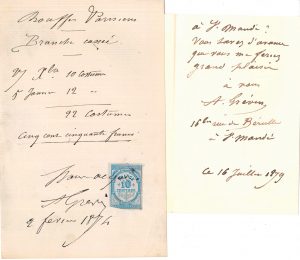 Bouffes Parisiens
Branche cassée
27 Xbre 10 costumes
5 Janvier 12 "
22 costumes
Cinq cent cinquante francs
Pour acquit
A Grévin
2 février 1874
10
CENTIMES
à St Mandé ?
Vous savez d'avance
que vous me feriez
grand plaisir
à vous
A. Grévin
16 bis rue de Bérulle
à St Mandé
ce 16 Juillet 1879